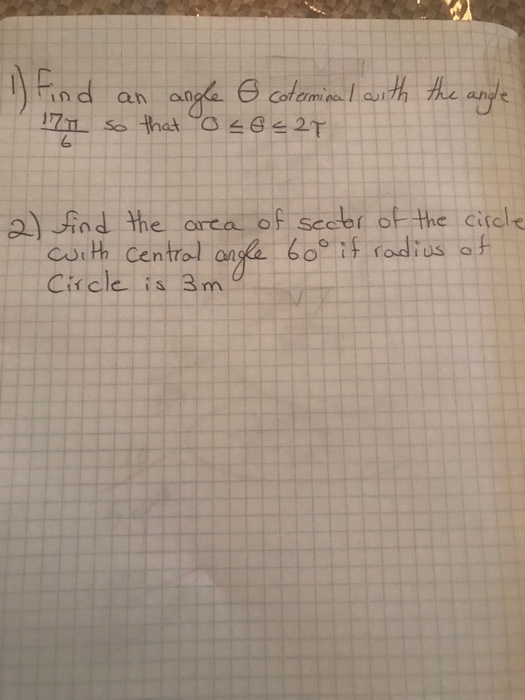 1) Find an angle θ coterminal with the angle
17π/6 so that 0 ≤ θ ≤ 2π
2) find the area of sector of the circle
with central angle 60° if radius of
Circle is 3m